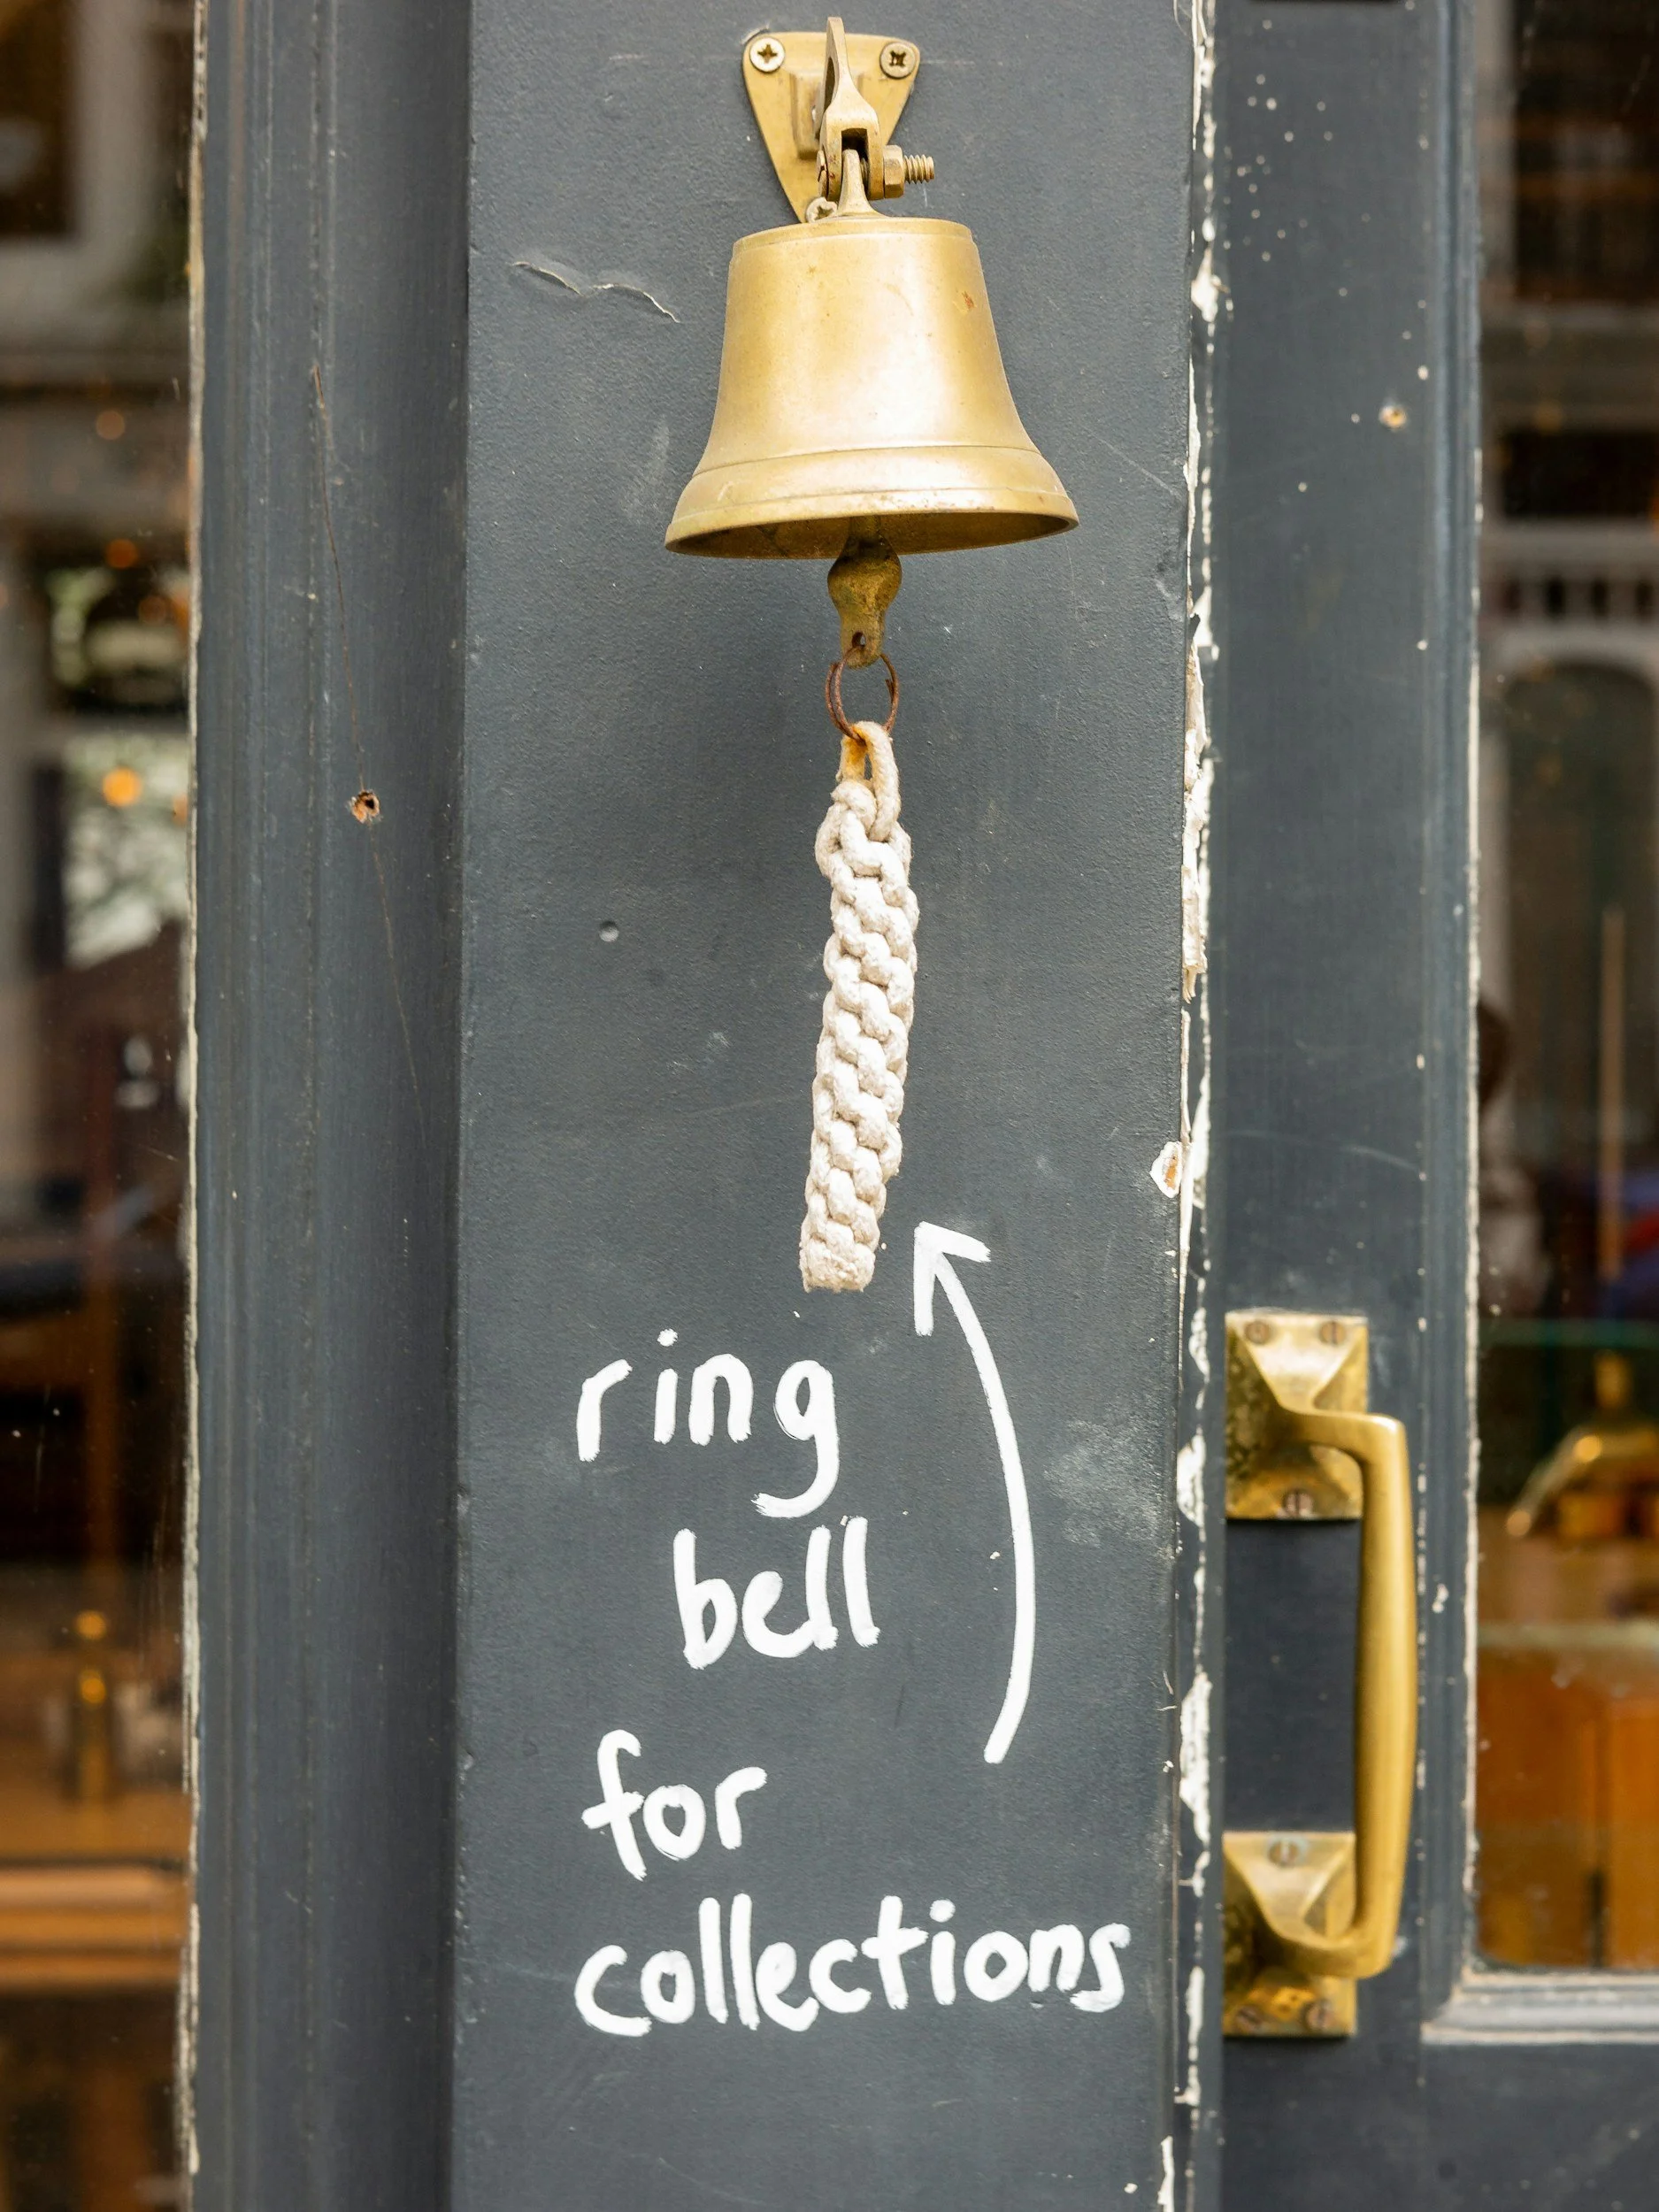 ring
bell
for
collections